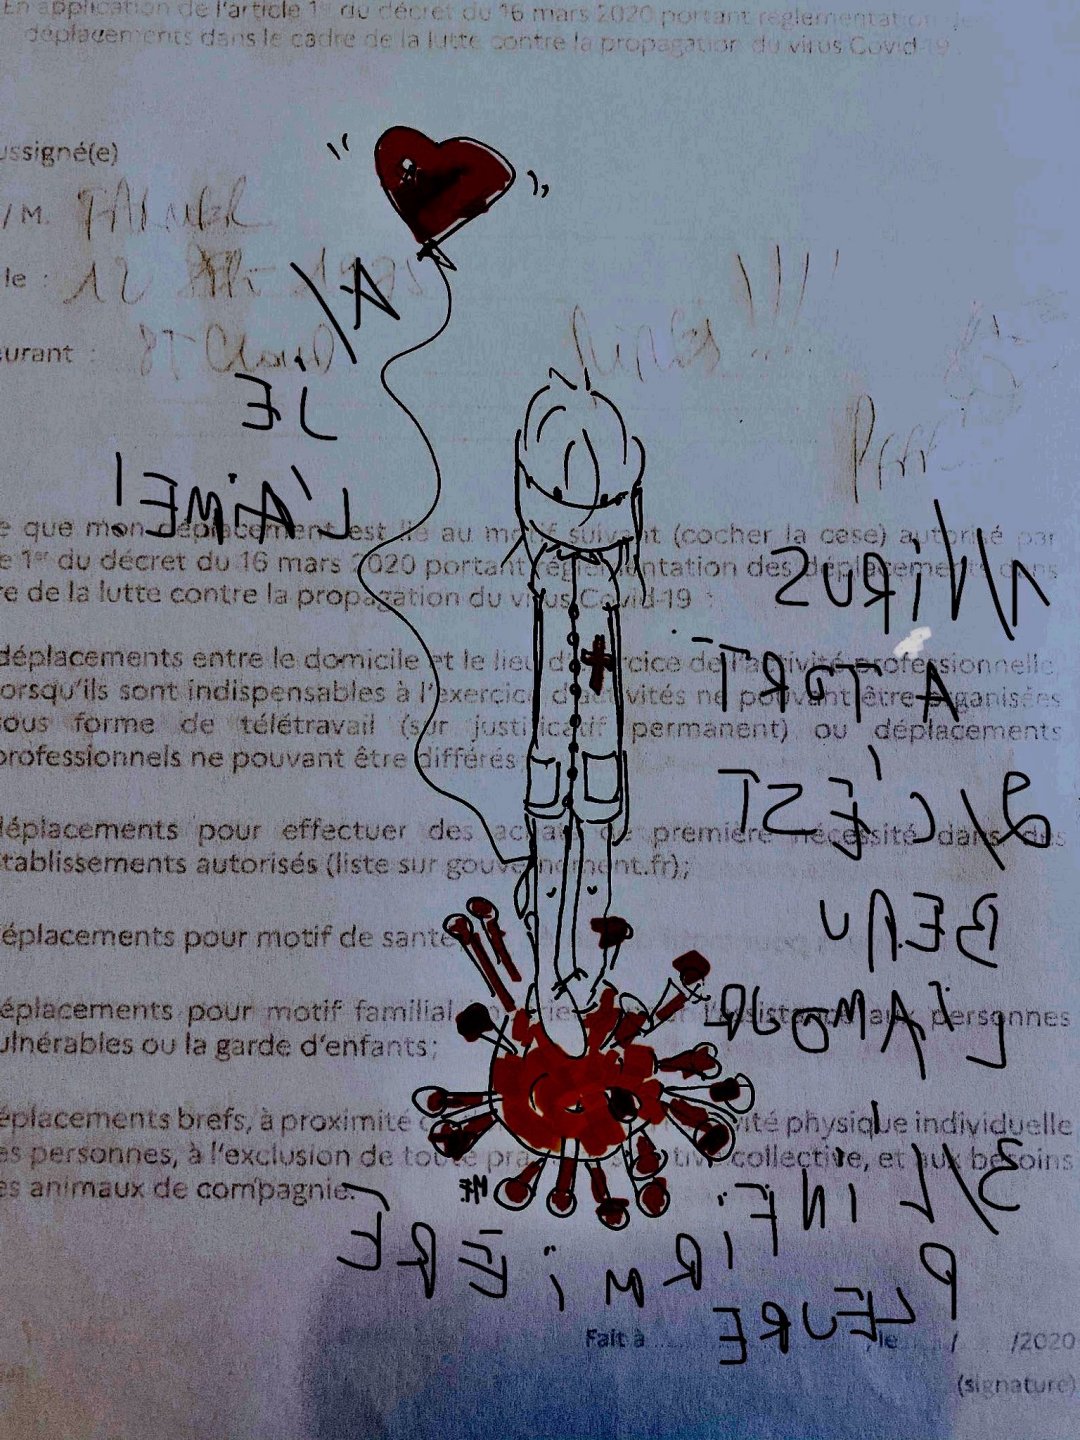 En application de l'article 1er du décret du 16 mars 2020 portant réglementation des
déplacements dans le cadre de la lutte contre la propagation du virus Covid-19
ussigné(e)
/M.
le : 12
urant :
A/
JE
L'AIME!
e que mon déplacement est lié au motif suivant (cocher la case) autorisé par
e 1er du décret du 16 mars 2020 portant réglementation des déplacements dans
re de la lutte contre la propagation du virus Covid-19 :
1/VIRUS
A TORT
déplacements entre le domicile et le lieu d'exercice de l'activité professionnelle,
orsqu'ils sont indispensables à l'exercice d'activités ne pouvant être organisées
ous forme de télétravail (sur justificatif permanent) ou déplacements
professionnels ne pouvant être différés
2/C'EST
BEAU
L'AMOUR
déplacements pour effectuer des achats de première nécessité dans des
tablissements autorisés (liste sur gouvernement.fr);
éplacements pour motif de santé
éplacements pour motif familial l'assistance aux personnes
ulnérables ou la garde d'enfants;
éplacements brefs, à proximité activité physique individuelle
es personnes, à l'exclusion de toute pratique sportive collective, et aux besoins
es animaux de compagnie.
3/L'INFIRMIÈRE
PLEURE
Fait à ................, le / /2020
(signature)